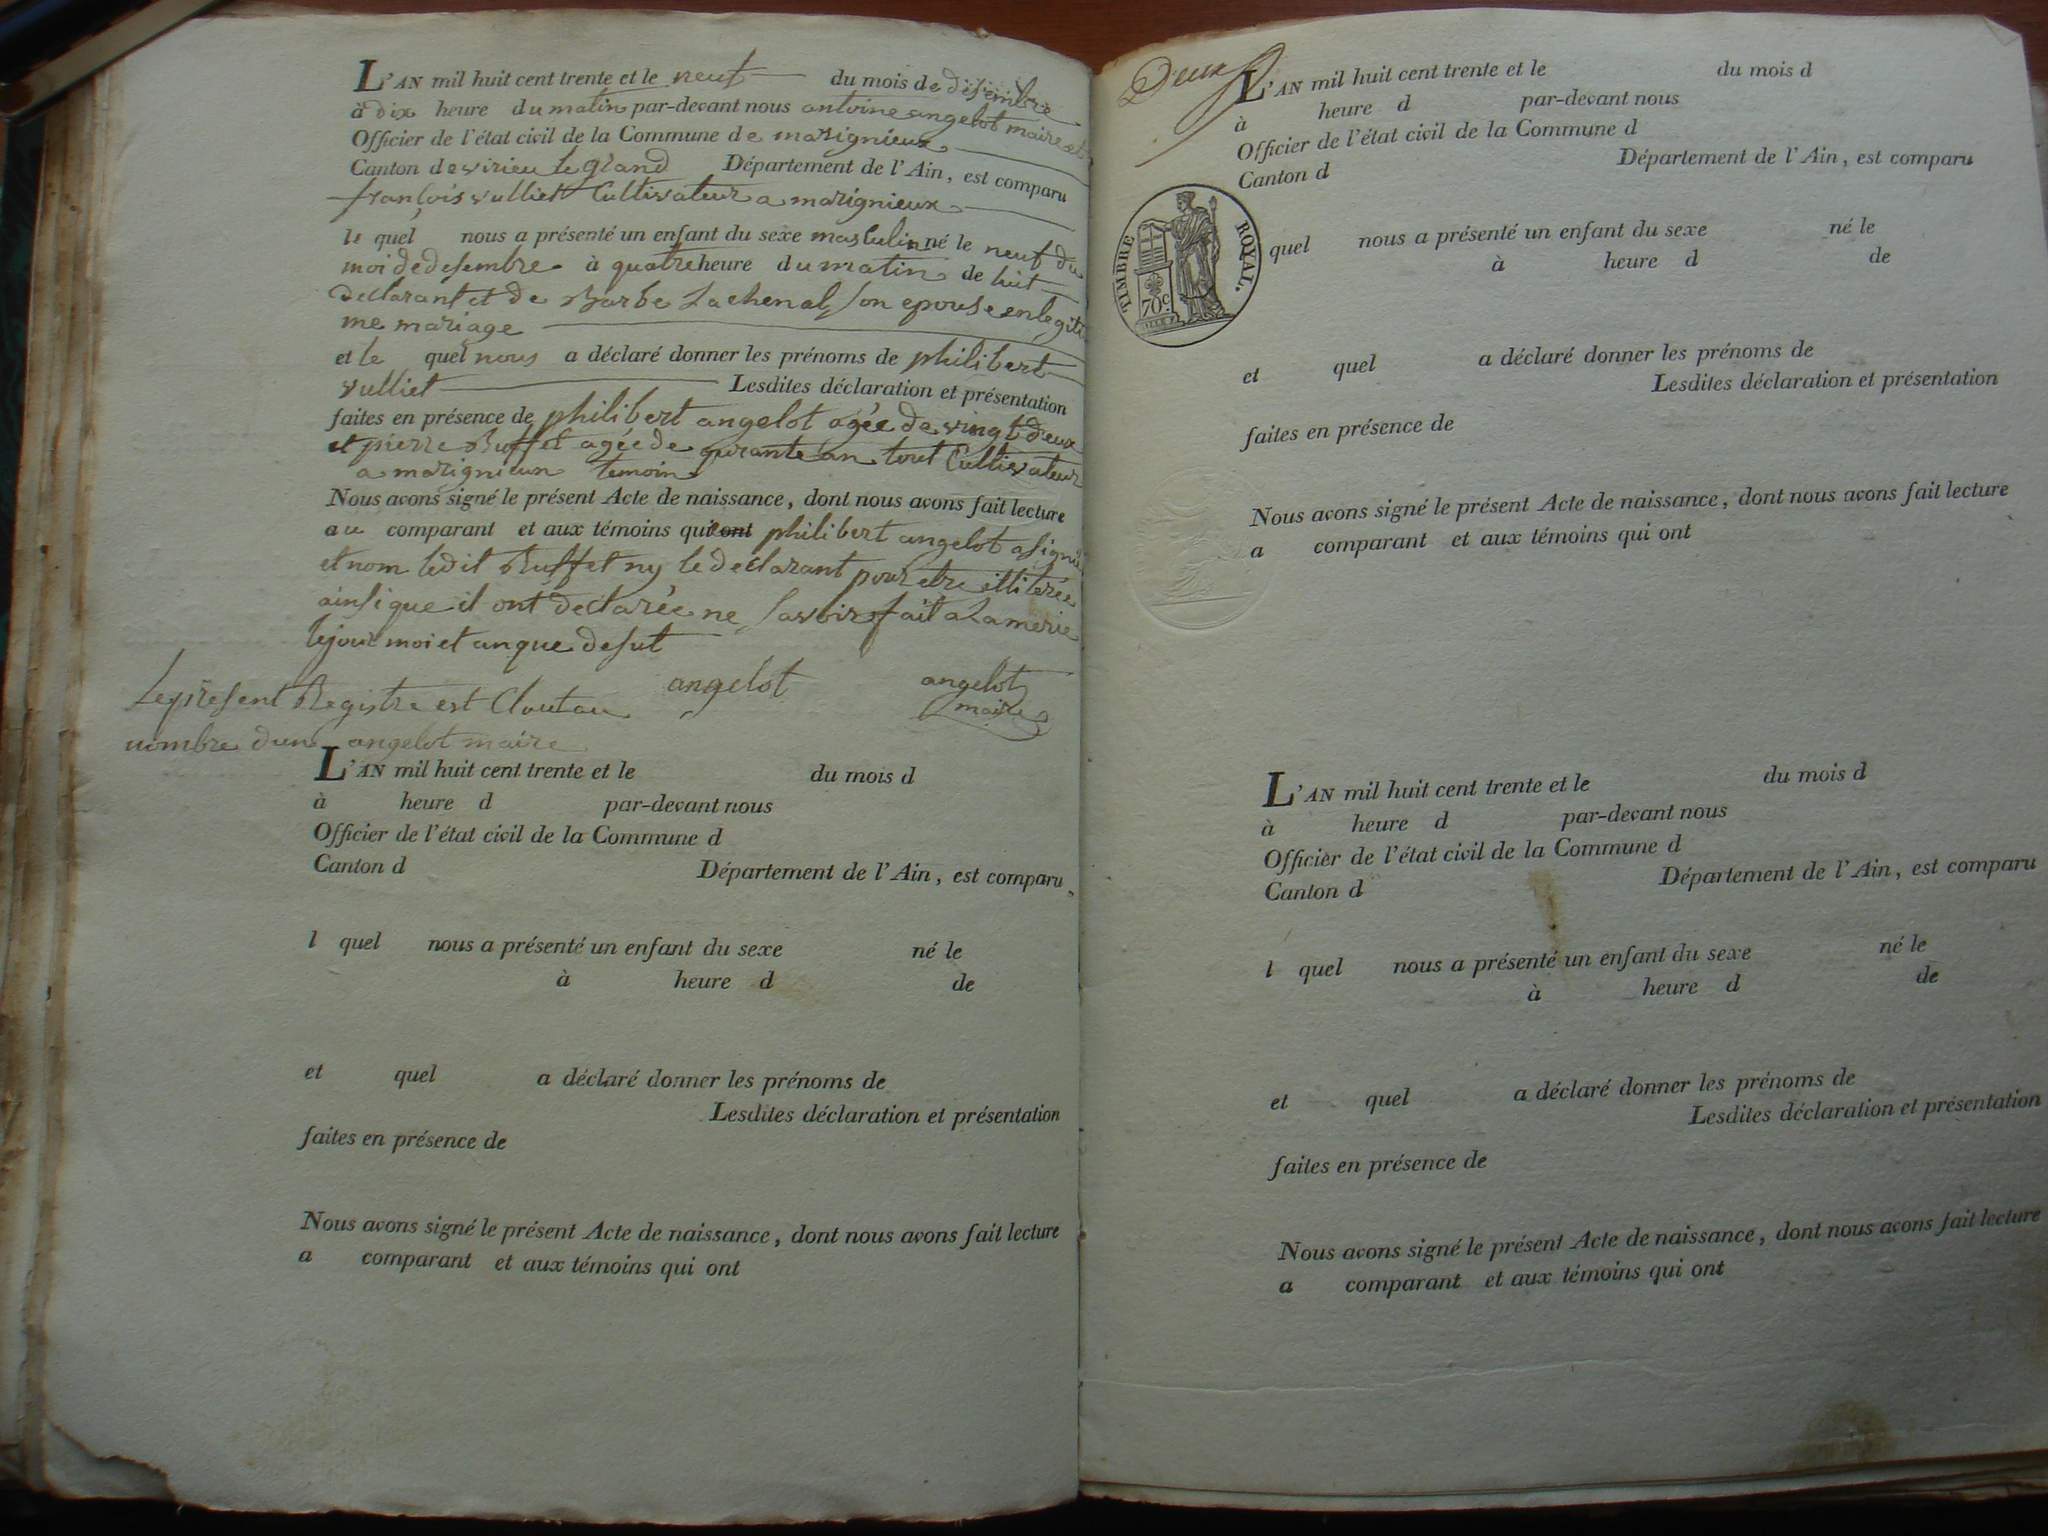 L'AN mil huit cent trente et le neuf du mois de désembre
à dix heure du matin par-devant nous antoine angelot maire et
Officier de l'état civil de la Commune de marignieux
Canton de virieu le grand Département de l'Ain, est comparu
françois vulliet Cultivateur a marignieux
le quel nous a présenté un enfant du sexe masculin né le neuf du
moi de desembre à quatre heure du matin de luit
declarant et de Barbe Lachenal son epouse en legiti
me mariage
et le quel nous a déclaré donner les prénoms de philibert
vulliet Lesdites déclaration et présentation
faites en présence de philibert angelot agée de vingt deux
et pierre Buffet agée de qurante an tout Cultivateur
a marignieux temoin
Nous avons signé le présent Acte de naissance, dont nous avons fait lecture
au comparant et aux témoins qui ont philibert angelot a signé
et nom ledit Buffet ny le declarant pour etre illiterée
ainsi que il ont declarée ne savoir fait a La merie
le jour moi et an que desut
angelot angelot
maire
Le present Registre est Clout au
nombre dun angelot maire
L'AN mil huit cent trente et le du mois d
à heure d par-devant nous
Officier de l'état civil de la Commune d
Canton d Département de l'Ain, est comparu
l quel nous a présenté un enfant du sexe né le
à heure d de
et quel a déclaré donner les prénoms de
Lesdites déclaration et présentation
faites en présence de
Nous avons signé le présent Acte de naissance, dont nous avons fait lecture
a comparant et aux témoins qui ont
Deux
L'AN mil huit cent trente et le du mois d
à heure d par-devant nous
Officier de l'état civil de la Commune d
Canton d Département de l'Ain, est comparu
TIMBRE ROYAL.
70c.
quel nous a présenté un enfant du sexe né le
à heure d de
et quel a déclaré donner les prénoms de
Lesdites déclaration et présentation
faites en présence de
Nous avons signé le présent Acte de naissance, dont nous avons fait lecture
a comparant et aux témoins qui ont
L'AN mil huit cent trente et le du mois d
à heure d par-devant nous
Officier de l'état civil de la Commune d
Canton d Département de l'Ain, est comparu
l quel nous a présenté un enfant du sexe né le
à heure d de
et quel a déclaré donner les prénoms de
Lesdites déclaration et présentation
faites en présence de
Nous avons signé le présent Acte de naissance, dont nous avons fait lecture
a comparant et aux témoins qui ont